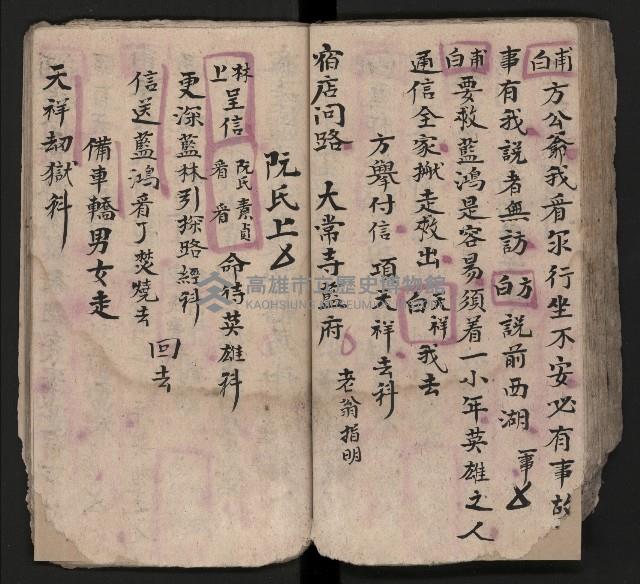 甫白 方公爺我看尔行坐不安必有事故
事有我説者無訪 方白 説前西湖一事
甫白 要救藍鴻是容易須着一小年英雄之人
通信全家搬走救出 天祥白 我去
方舉付信 項天祥去科
宿店问路 大常寺藍府 老翁指明
阮氏上
林上 呈信 阮氏看 素貞看 命待英雄科
更深藍林引探路經科
信送藍鴻看丁焚燒去 回去
備車轎男女走
天祥劫獄科
高雄市立歷史博物館
KAOHSIUNG MUSEUM OF HISTORY